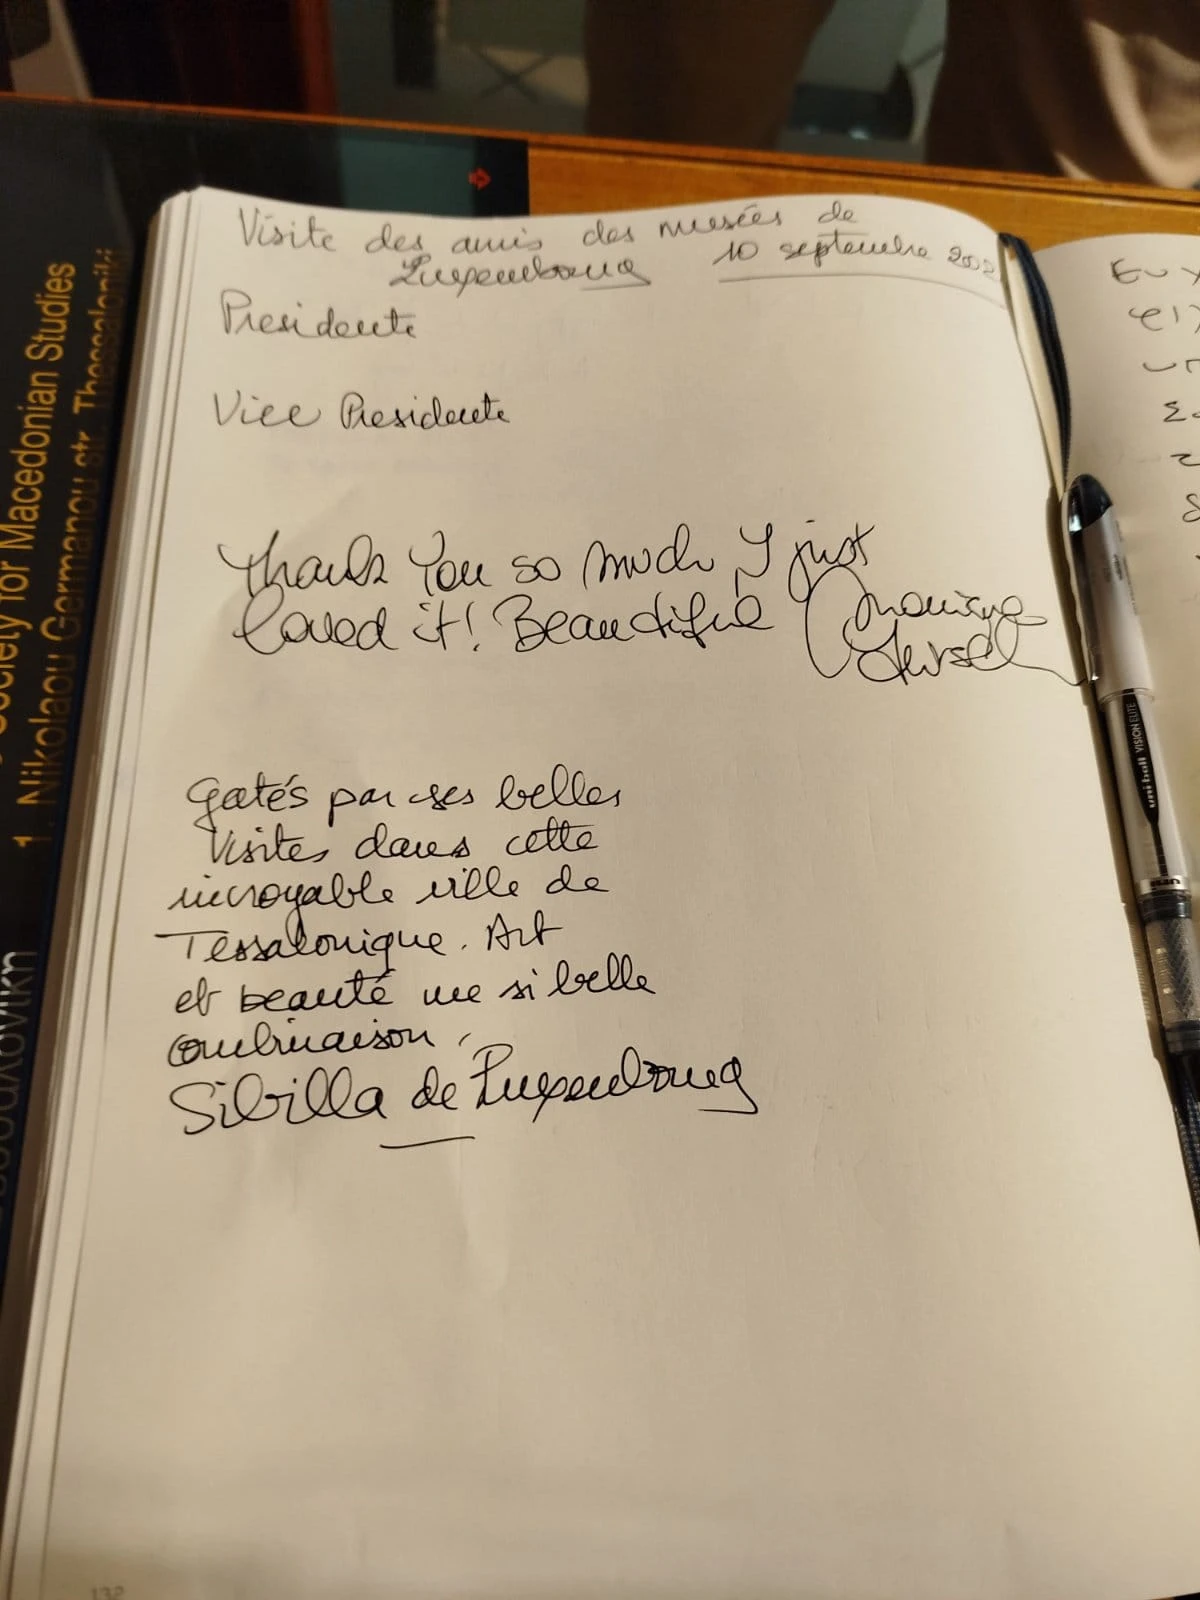 Visite des amis des musées de
Luxembourg 10 septembre
Presidente
Vice Presidente
Thank You so much I just
loved it! Beautiful
Gatés par ses belles
Visites dans cette
incroyable ville de
Tessalonique. Art
et beauté une si belle
combinaison,
Sibilla de Luxembourg
Society for Macedonian Studies
1, Nikolaou Germanou str. Thessaloniki
uni-ball VISION ELITE
uni
132